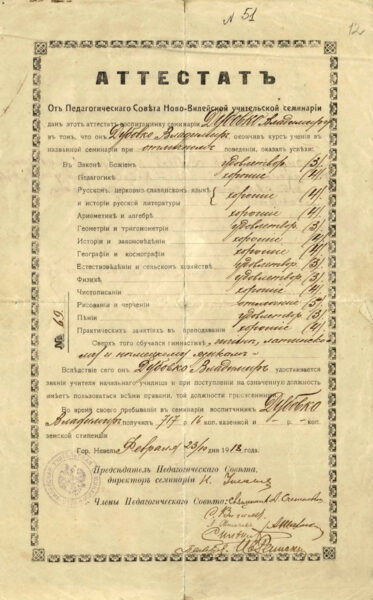 № 51
12
АТТЕСТАТЪ
Отъ Педагогическаго Совѣта Ново-Вилейской учительской семинаріи
данъ этотъ аттестатъ воспитаннику семинаріи Дубовко Владиміру
въ томъ, что онъ Дубовко Владиміръ, окончивъ курсъ ученія въ
названной семинаріи при отличномъ поведеніи, оказалъ успѣхи:
Въ Законѣ Божіемъ удовлетвор. (3)
Педагогикѣ хорошіе (4)
Русскомъ, церковно-славянскомъ языкѣ
и исторіи русской литературы хорошіе (4)
Ариѳметикѣ и алгебрѣ хорошіе (4)
Геометріи и тригонометріи удовлетвор. (3)
Исторіи и законовѣдѣніи хорошіе (4)
Географіи и космографіи хорошіе (4)
Естествовѣдѣніи и сельскомъ хозяйствѣ удовлетвор. (3)
Физикѣ удовлетвор. (3)
Чистописаніи хорошіе (4)
Рисованіи и черченіи отличные (5)
Пѣніи удовлетвор. (3)
Практическихъ занятіяхъ въ преподаваніи хорошіе (4)
№ 69.
Сверхъ того обучался гимнастикѣ,
и нѣмецкому языкамъ
Вслѣдствіе сего онъ Дубовко Владиміръ удостаивается
званія учителя начальнаго училища и при поступленіи на означенную должность
имѣетъ пользоваться всѣми правами, той должности присвоенными.
Во время своего пребыванія въ семинаріи воспитанникъ Дубовко
Владиміръ получилъ 717 р. 16 коп. казенной и - р. - коп.
земской стипендіи
Гор. Невель. Февраля 23/10 дня 1918 г.
Предсѣдатель Педагогическаго Совѣта,
директоръ семинаріи
Члены Педагогическаго Совѣта: